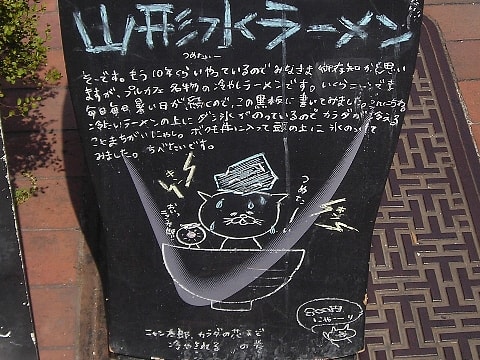 山形氷ラーメン
つめたいー
そーです。もう10年くらいやっているのでみなさま御存知かと思い
ますが、プレカフェ名物の冷やしラーメンです。いくらラーメンです
毎日毎日、暑い日が続くので、この黒板に書いてみました。
冷たいラーメンの上にダシ氷がのっているのでカラダが冷える
ことまちがいにゃし。ボクも丼に入って頭の上に氷のっけて
みました。ちべたいです。
キーン
つめたーい
キーン
ニャン太郎、カラダの芯まで
冷やされる の巻
800円
にゃーり